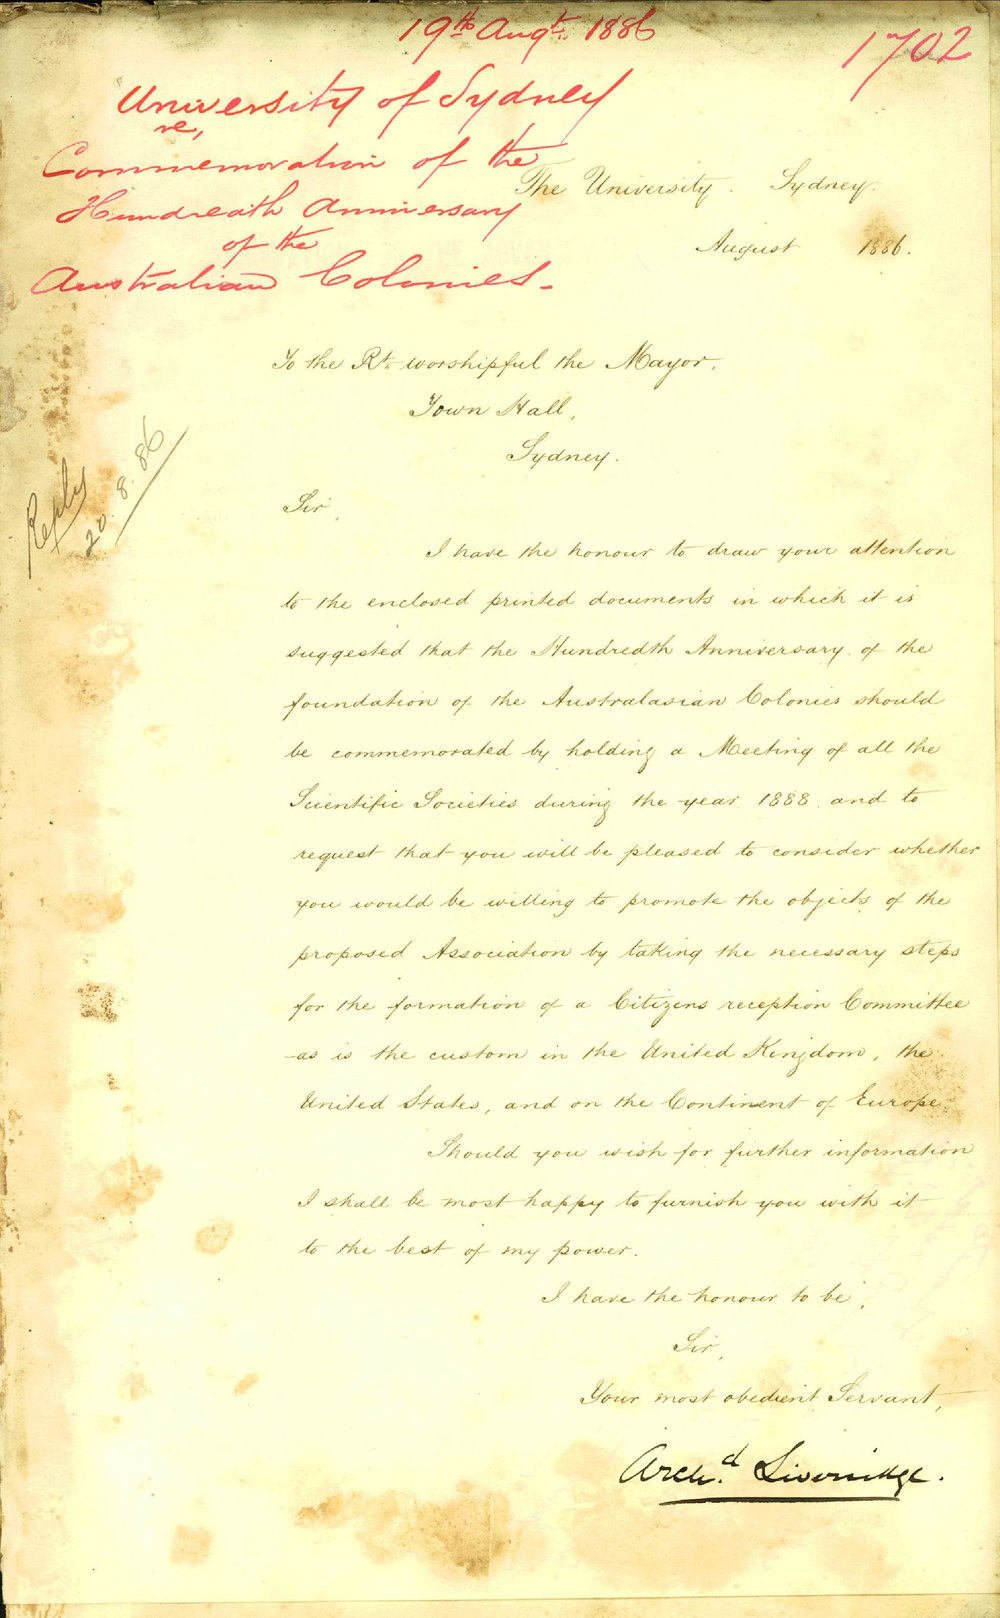 19th Augt. 1886
1702
University of Sydney
re,
Commemoration of the
Hundreath Anniversary
of the
Australian Colonies.
The University. Sydney.
August 1886.
To the Rt. worshipful the Mayor,
Town Hall,
Sydney.
Reply
20.8.86
Sir,
I have the honour to draw your attention
to the enclosed printed documents in which it is
suggested that the Hundredth Anniversary of the
foundation of the Australasian Colonies should
be commemorated by holding a Meeting of all the
Scientific Societies during the year 1888 and to
request that you will be pleased to consider whether
you would be willing to promote the objects of the
proposed Association by taking the necessary steps
for the formation of a Citizens reception Committee
-as is the custom in the United Kingdom, the
United States, and on the Continent of Europe.
Should you wish for further information
I shall be most happy to furnish you with it
to the best of my power.
I have the honour to be,
Sir,
Your most obedient Servant,
Archd. Liversidge.